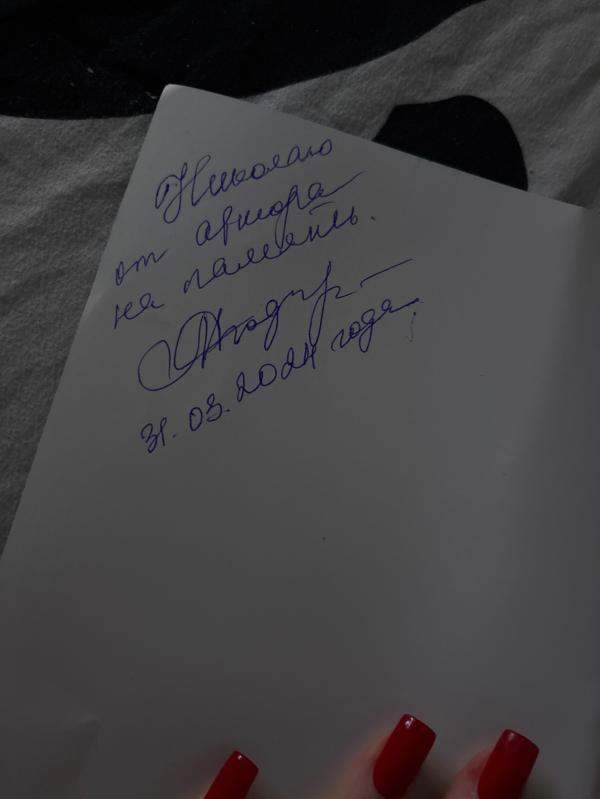 Николаю
от автора
на память.
31.03.2024 года.